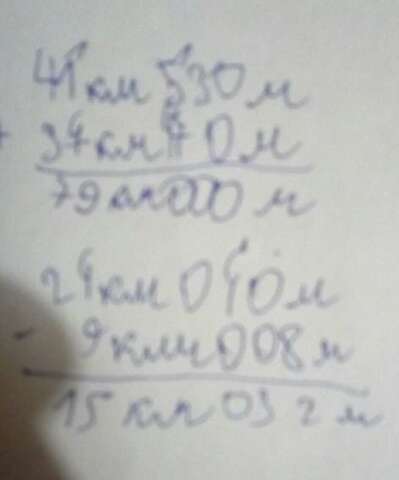 41 км 530 м
+ 37 км 470 м
79 км 000 м
24 км 040 м
- 9 км 008 м
15 км 032 м